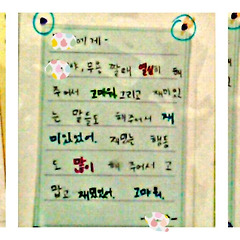 에게-
야, 우중 깔래 열심히 해
주어서 고마워 그리고 재미있
는 말들도 해주어서 재
미있었어. 재밌는 행동
도 많이 해 주어서 고
맙고 재밌었어. 고마워.